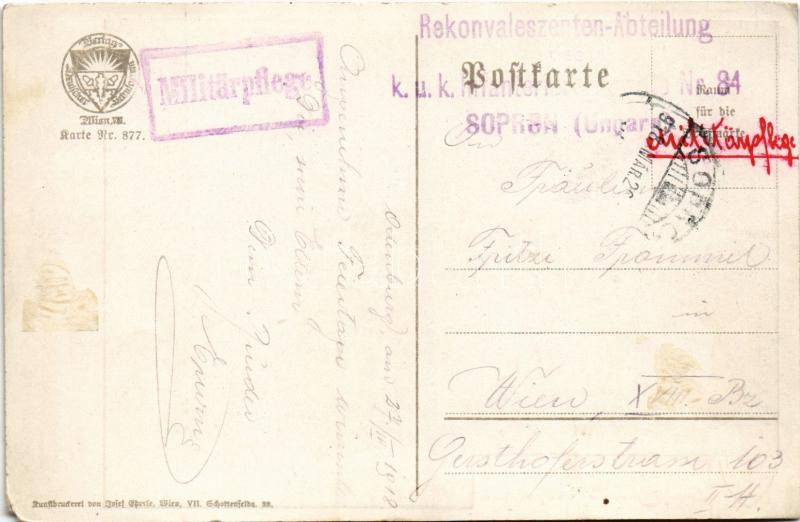 Verlag
Wien, VII.
Karte Nr. 877.
Militärpflege
Rekonvaleszenten-Abteilung
Postkarte
k. u. k. Nr. 84
SOPRON (Ungarn)
Raum
für die
Militärpflege
MAR. 26
SOPRO
Ödenburg am 27/III 1918
Angenehme Feiertage wünscht
Dir und
Dein Bruder
An
Fräulein
Fritzi Frommel
in
Wien, XVIII. Bz
Gersthoferstrasse 103
II. St.
Kunstdruckerei von Josef Eberle, Wien, VII. Schottenfeldg. 38.